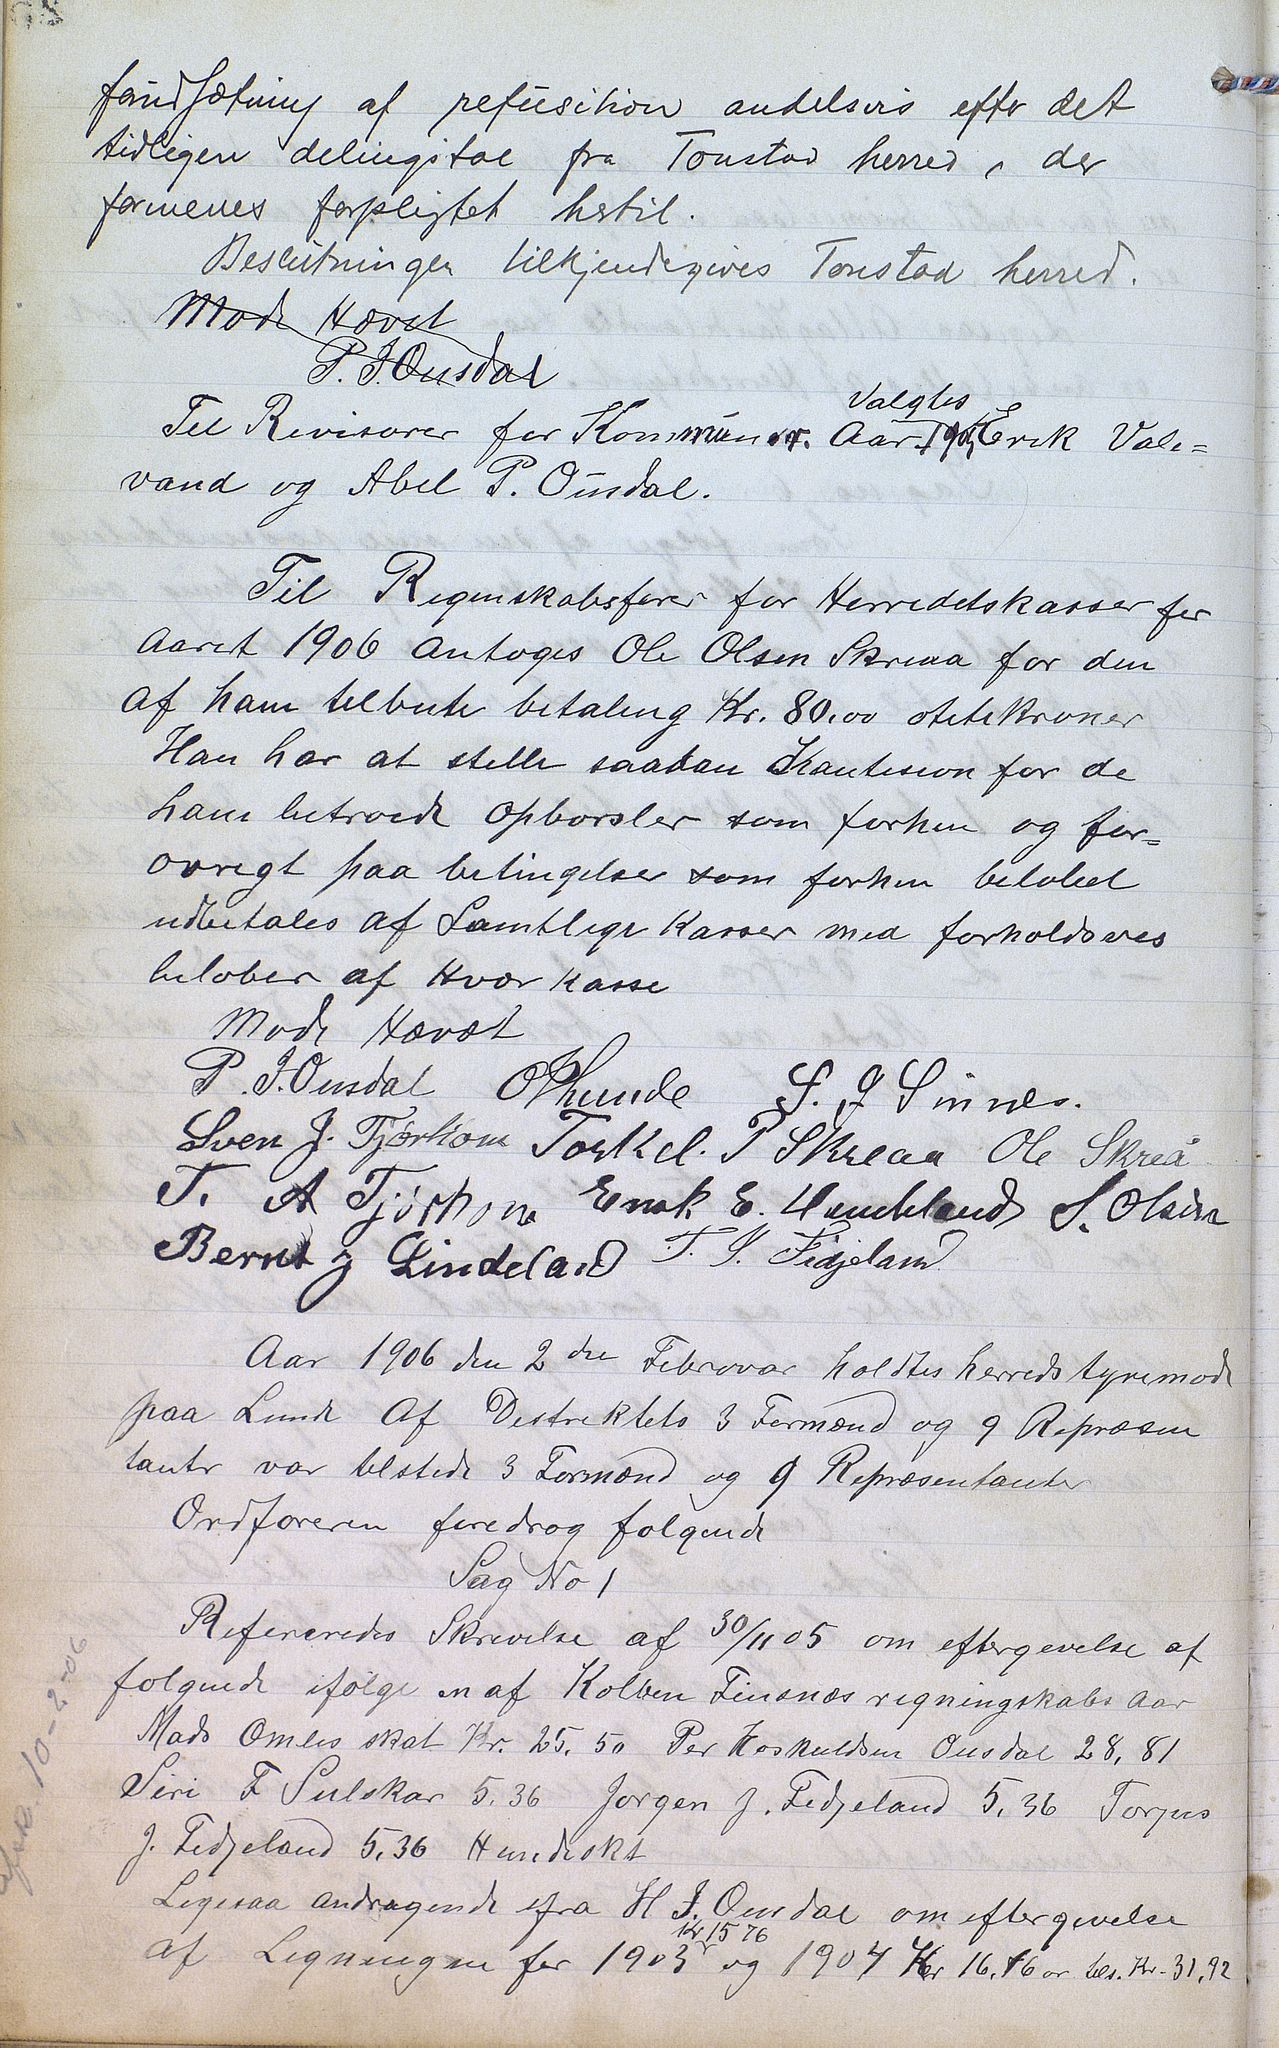 af refusition andelsvis efter det
tidligere delingstal fra Tonstad herred, der
formenes forpligtet hertil.
Beslutningen tilkjendegives Tonstad herred.
Møde Hævet
P. J. Ousdal
Valgtes
Til Revisorer for Kommunen Aar 1905 Erik Vale=
vand og Abel P. Ousdal.
Til Regnskabsfører for Herredetskasser for
aaret 1906 antoges Ole Olsen Skreaa for den
af ham tilbute betaling Kr. 80.00 ottitekroner
Han har at stelle saadan Kautision for de
ham betroede opbørsler som forhen og for=
øvregt paa betingelser som forhen beløbet
udbetales af Samtlige Kasser med forholdsves
beløber af Hvær kasse
Møde Hævæt
P. J. Ousdal O Thunde S. J Sinnes.
Sven J. Tjørhom Torkel. P Skreaa Ole Skreå
T. A Tjörhom Enok E. Haukland S. Olsen
Bernt J Lindeland T. J. Fidjeland
Aar 1906 den 2dre Februar holdtes herredstyremøde
paa Lunde Af Destrektets 3 Formænd og 9 Repræsen
tanter var telstede 3 Formænd og 9 Repræsentanter
Ordføreren foredrog følgende
Sag No 1
Refereredes Skrevelse af 30/11 05 om eftergevelse af
følgende ifølge af Kolben Finsnæs regningskabs aar
Mads Omlis skat Kr. 25.50 Per Hoskuldsen Ousdal 28,81
Siri F Sulskar 5.36 Jørgen J. Fedjeland 5,36 Torjus
J. Fedjeland 5,36 Hundeskt
Legesaa andragende fra H J. Ousdal om eftergevelse
Kr 15 76
af Legningen for 1903 og 1904 Kr 16,16 ør tels. Kr. 31,92
10-2-06